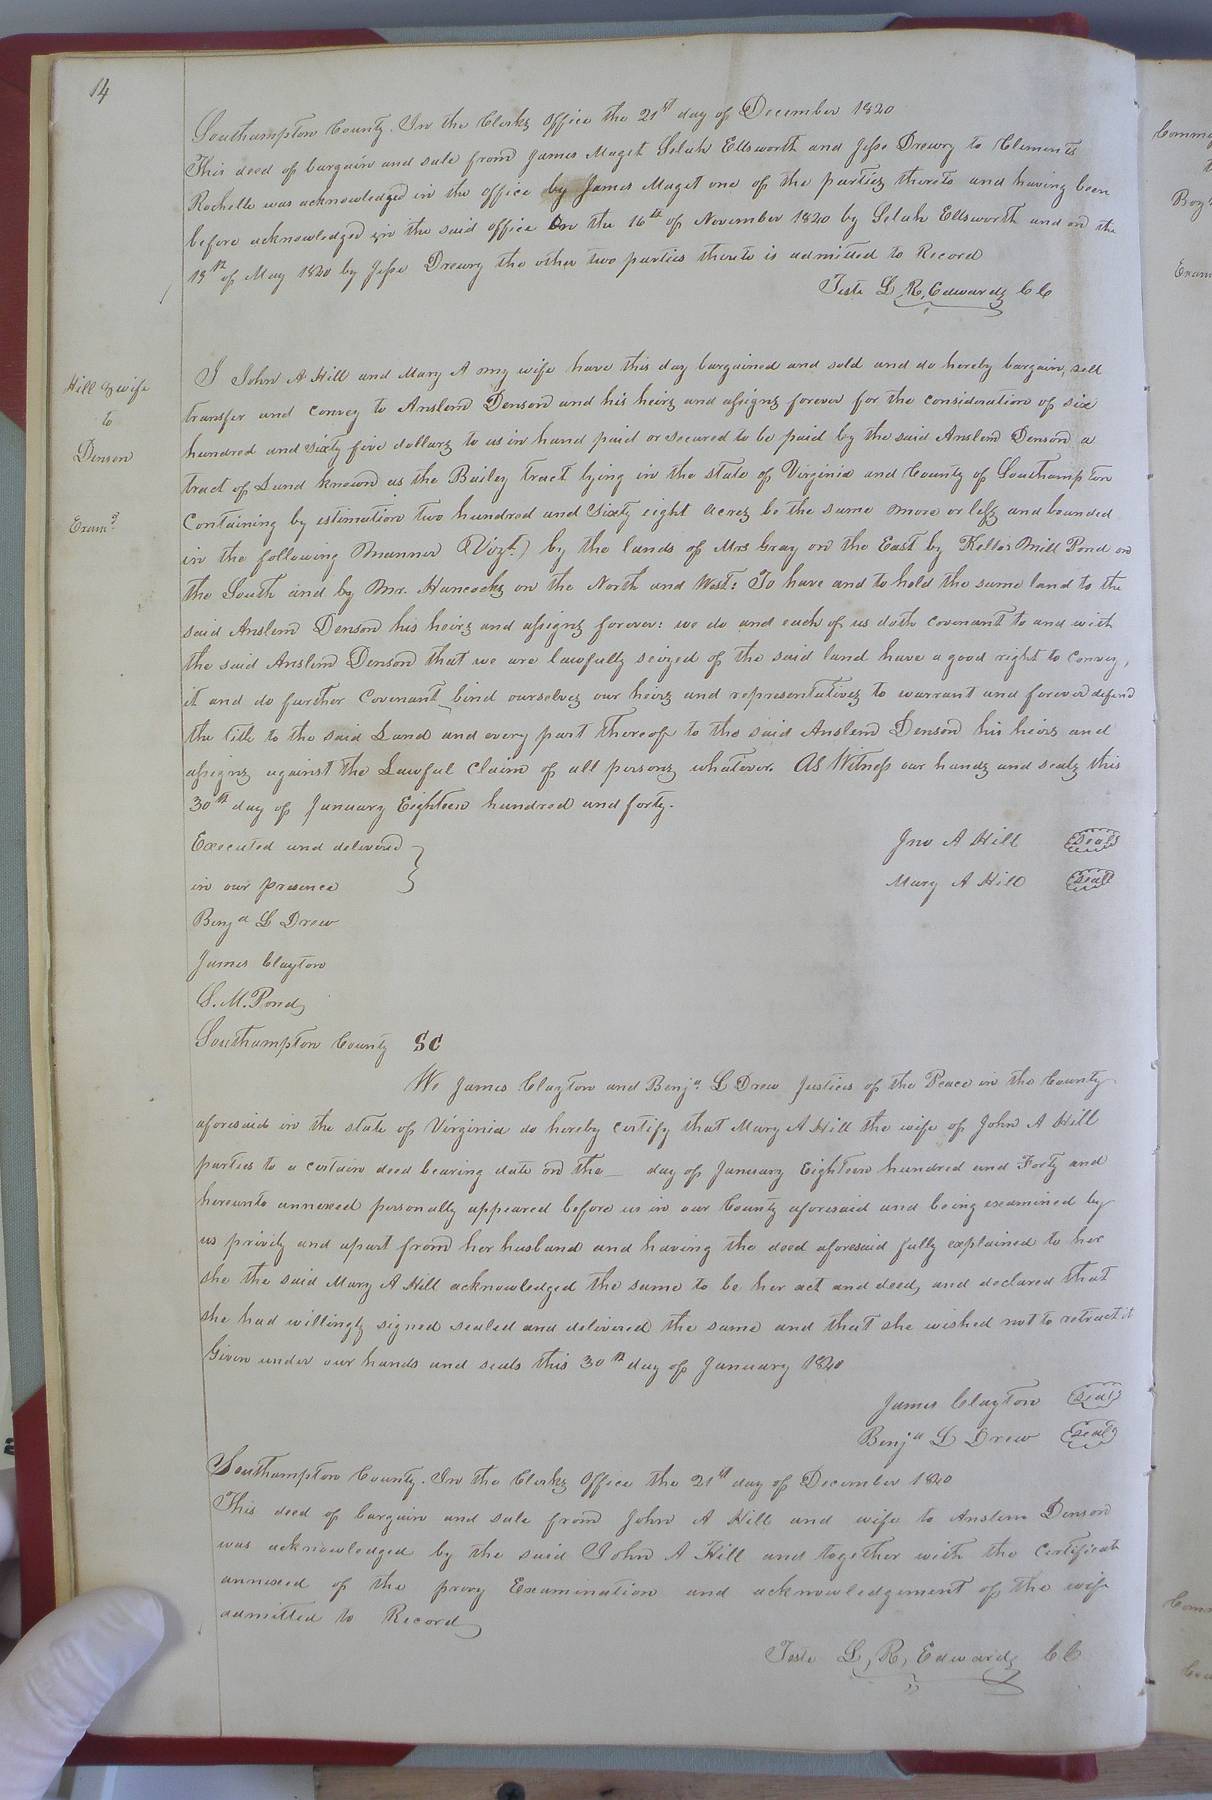 14
Southampton County. In the Clerks Office the 21st day of December 1840
This deed of bargain and sale from James Maget Selah Ellsworth and Jesse Drewry to Clements
Rochelle was acknowledged in the office by James Maget one of the parties thereto and having been
before acknowledged in the said office On the 16th of November 1840 by Selah Ellsworth and on the
18th of May 1840 by Jesse Drewry the other two parties thereto is admitted to Record
Teste L. R. Edwards CC
Hill & wife
to
Denson
Examd
I John A Hill and Mary A my wife have this day bargained and sold and do hereby bargain, sell
transfer and convey to Anslem Denson and his heirs and assigns forever for the consideration of six
hundred and sixty five dollars to us in hand paid or secured to be paid by the said Anslem Denson a
tract of Land known as the Bailey tract lying in the state of Virginia and County of Southampton
Containing by estimation two hundred and Sixty eight acres be the same more or less and bounded
in the following Manner (Vizt.) by the lands of Mrs Gray on the East by Kello's Mill Pond on
the South and by Mr. Hancocks on the North and West: To have and to hold the same land to the
said Anslem Denson his heirs and assigns forever: we do and each of us doth covenant to and with
the said Anslem Denson that we are lawfully seized of the said land have a good right to convey,
it and do further Covenant bind ourselves our heirs and representatives to warrant and forever defend
the title to the said Land and every part thereof to the said Anslem Denson his heirs and
assigns against the Lawful Claim of all persons whatever. AS Witness our hands and seals this
30th day of January Eighteen hundred and forty.
Executed and delivered } Jno A Hill Seal
in our presence Mary A Hill Seal
Benja L Drew
James Clayton
S. M. Pond
Southampton County SC
We James Clayton and Benja. L Drew Justices of the Peace in the County
aforesaid in the state of Virginia do hereby certify that Mary A Hill the wife of John A Hill
parties to a certain deed bearing date on the _ day of January Eighteen hundred and Forty and
hereunto annexed personally appeared before us in our County aforesaid and being examined by
us privily and apart from her husband and having the deed aforesaid fully explained to her
she the said Mary A Hill acknowledged the same to be her act and deed, and declared that
she had willingly signed sealed and delivered the same and that she wished not to retract it
Given under our hands and seals this 30th day of January 1840
James Clayton Seal
Benja L Drew Seal
Southampton County. In the Clerks Office the 21st day of December 1840
This deed of bargain and sale from John A Hill and wife to Anslem Denson
was acknowledged by the said John A Hill and together with the Certificate
annexed of the privy Examination and acknowledgement of the wife
admitted to Record
Teste L, R, Edwards CC